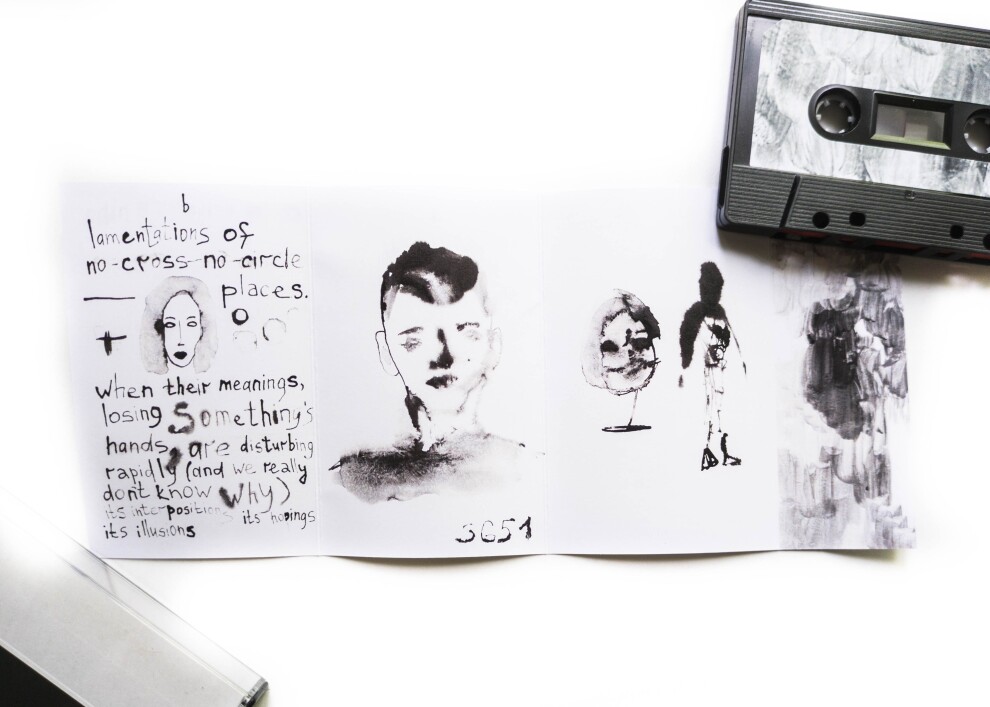 b
lamentations of
no-cross-no-circle
places.
when their meanings,
losing Something's
hands, are disturbing
rapidly (and we really
dont know Why)
its interpositions its hopings
its illusions
3651